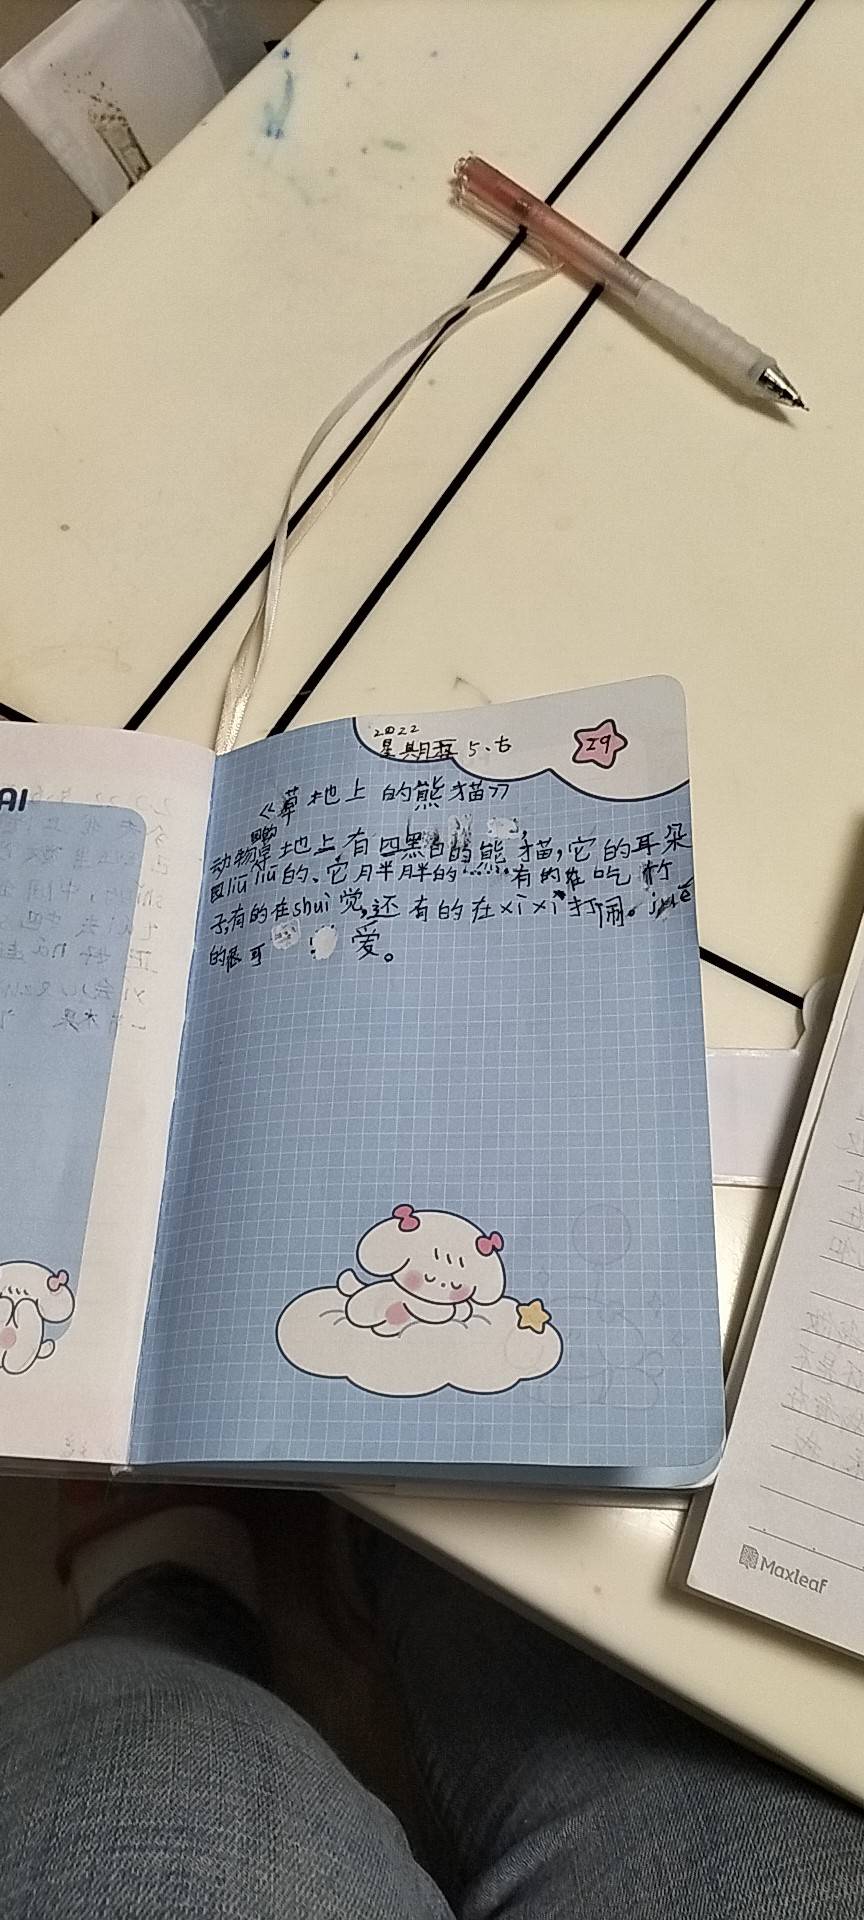 AI
2022
星期五 5、七
29
《草地上的熊猫》
园的
动物草地上有四黑白的熊猫,它的耳朵
圆liū liū的、它月半月半的……有的在吃竹
子,有的在shuì觉,还有的在xī xī打闹。jué
的很可爱。
Maxleaf